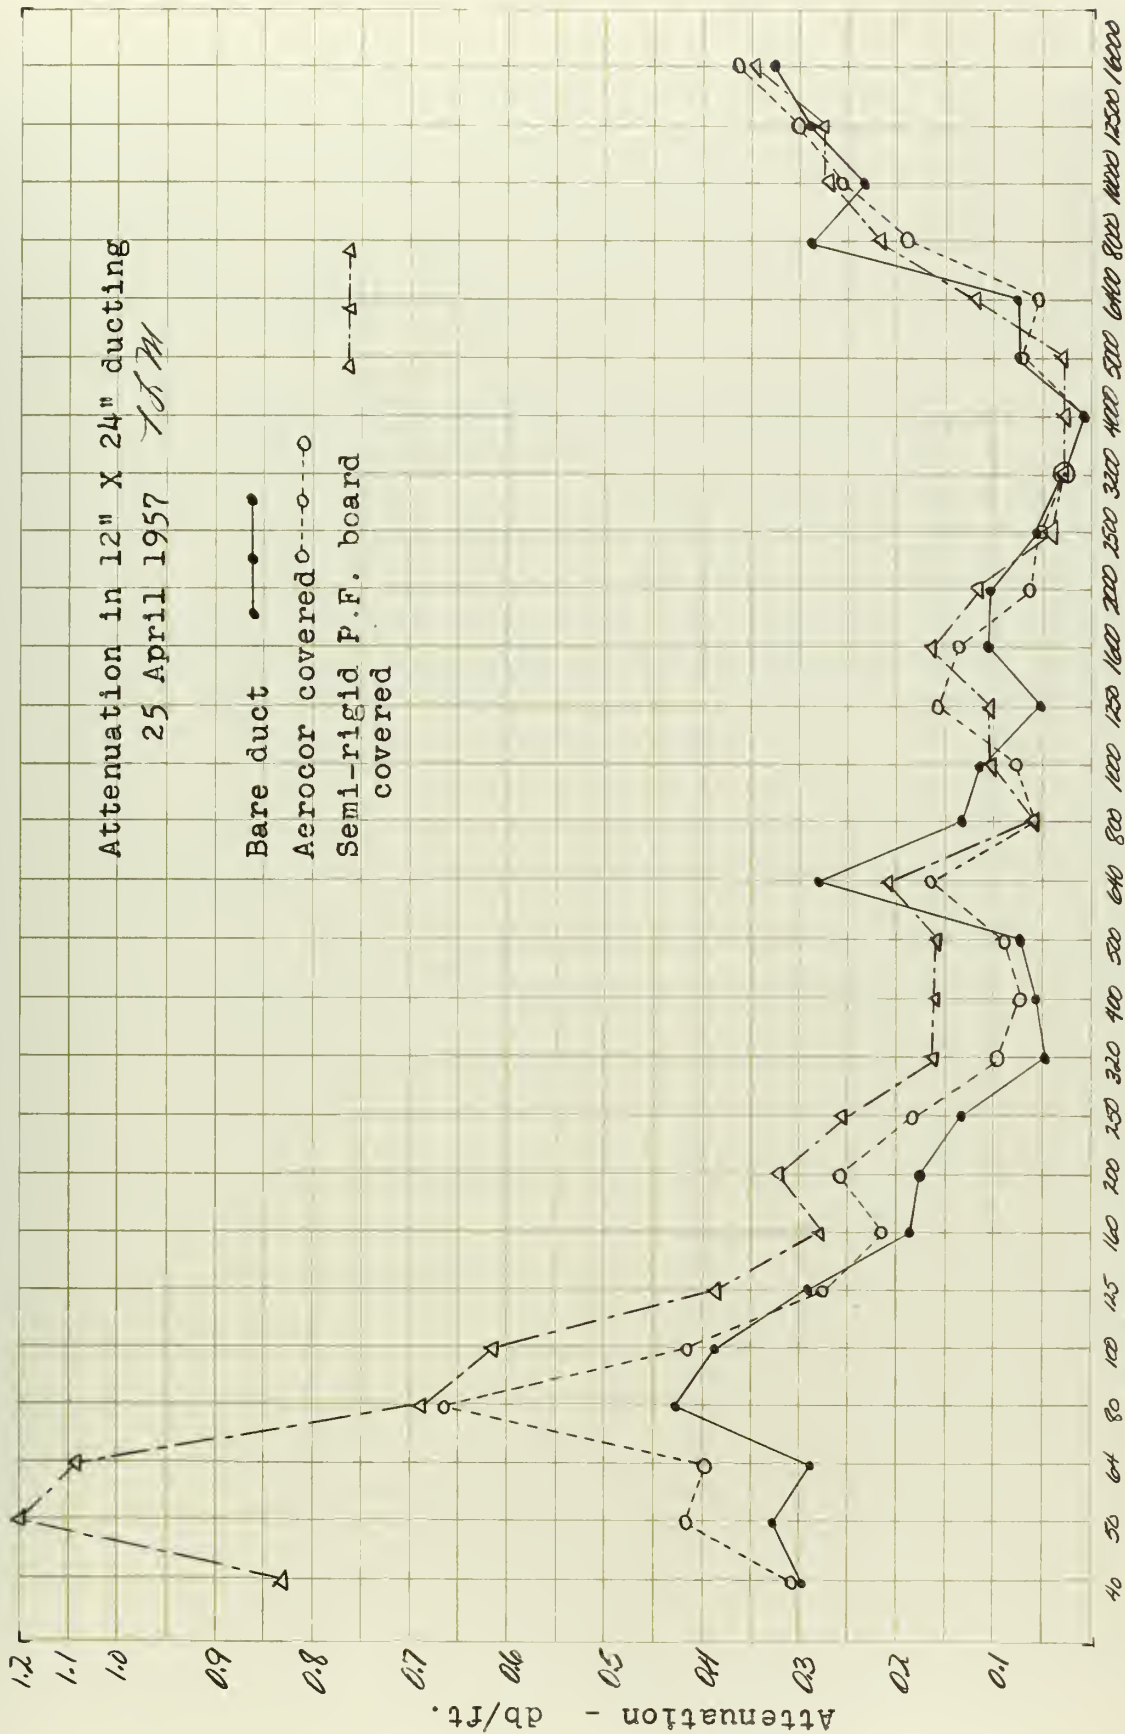 Attenuation in 12" X 24" ducting
25 April 1957
Bare duct
Aerocor covered
Semi-rigid P.F. board
covered
Attenuation - db/ft.
1.2
1.1
1.0
0.9
0.8
0.7
0.6
0.5
0.4
0.3
0.2
0.1
40 50 64 80 100 125 160 200 250 320 400 500 640 800 1000 1250 1600 2000 2500 3200 4000 5000 6400 8000 10000 12500 16000